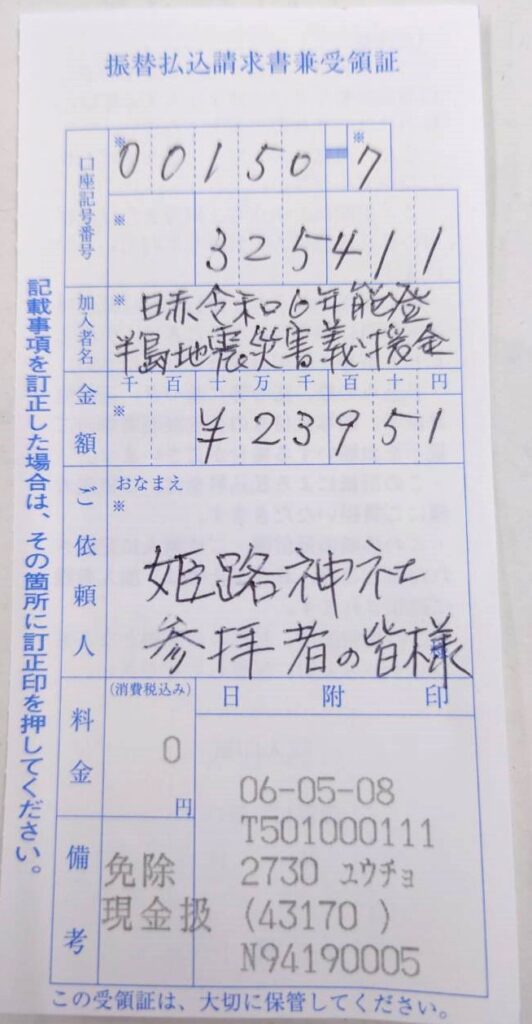 振替払込請求書兼受領証
口座記号番号
※ 00150-7 ※
※ 325411
加入者名
※ 日赤令和6年能登
半島地震災害義援金
金額
千百十万千百十円
※ ¥23951
ご依頼人
おなまえ
※
姫路神社
参拝者の皆様
料金
(消費税込み)
0
円
日附印
06-05-08
T501000111
2730 ユウチョ
(43170 )
N94190005
備考
免除
現金扱
記載事項を訂正した場合は、その箇所に訂正印を押してください。
この受領証は、大切に保管してください。